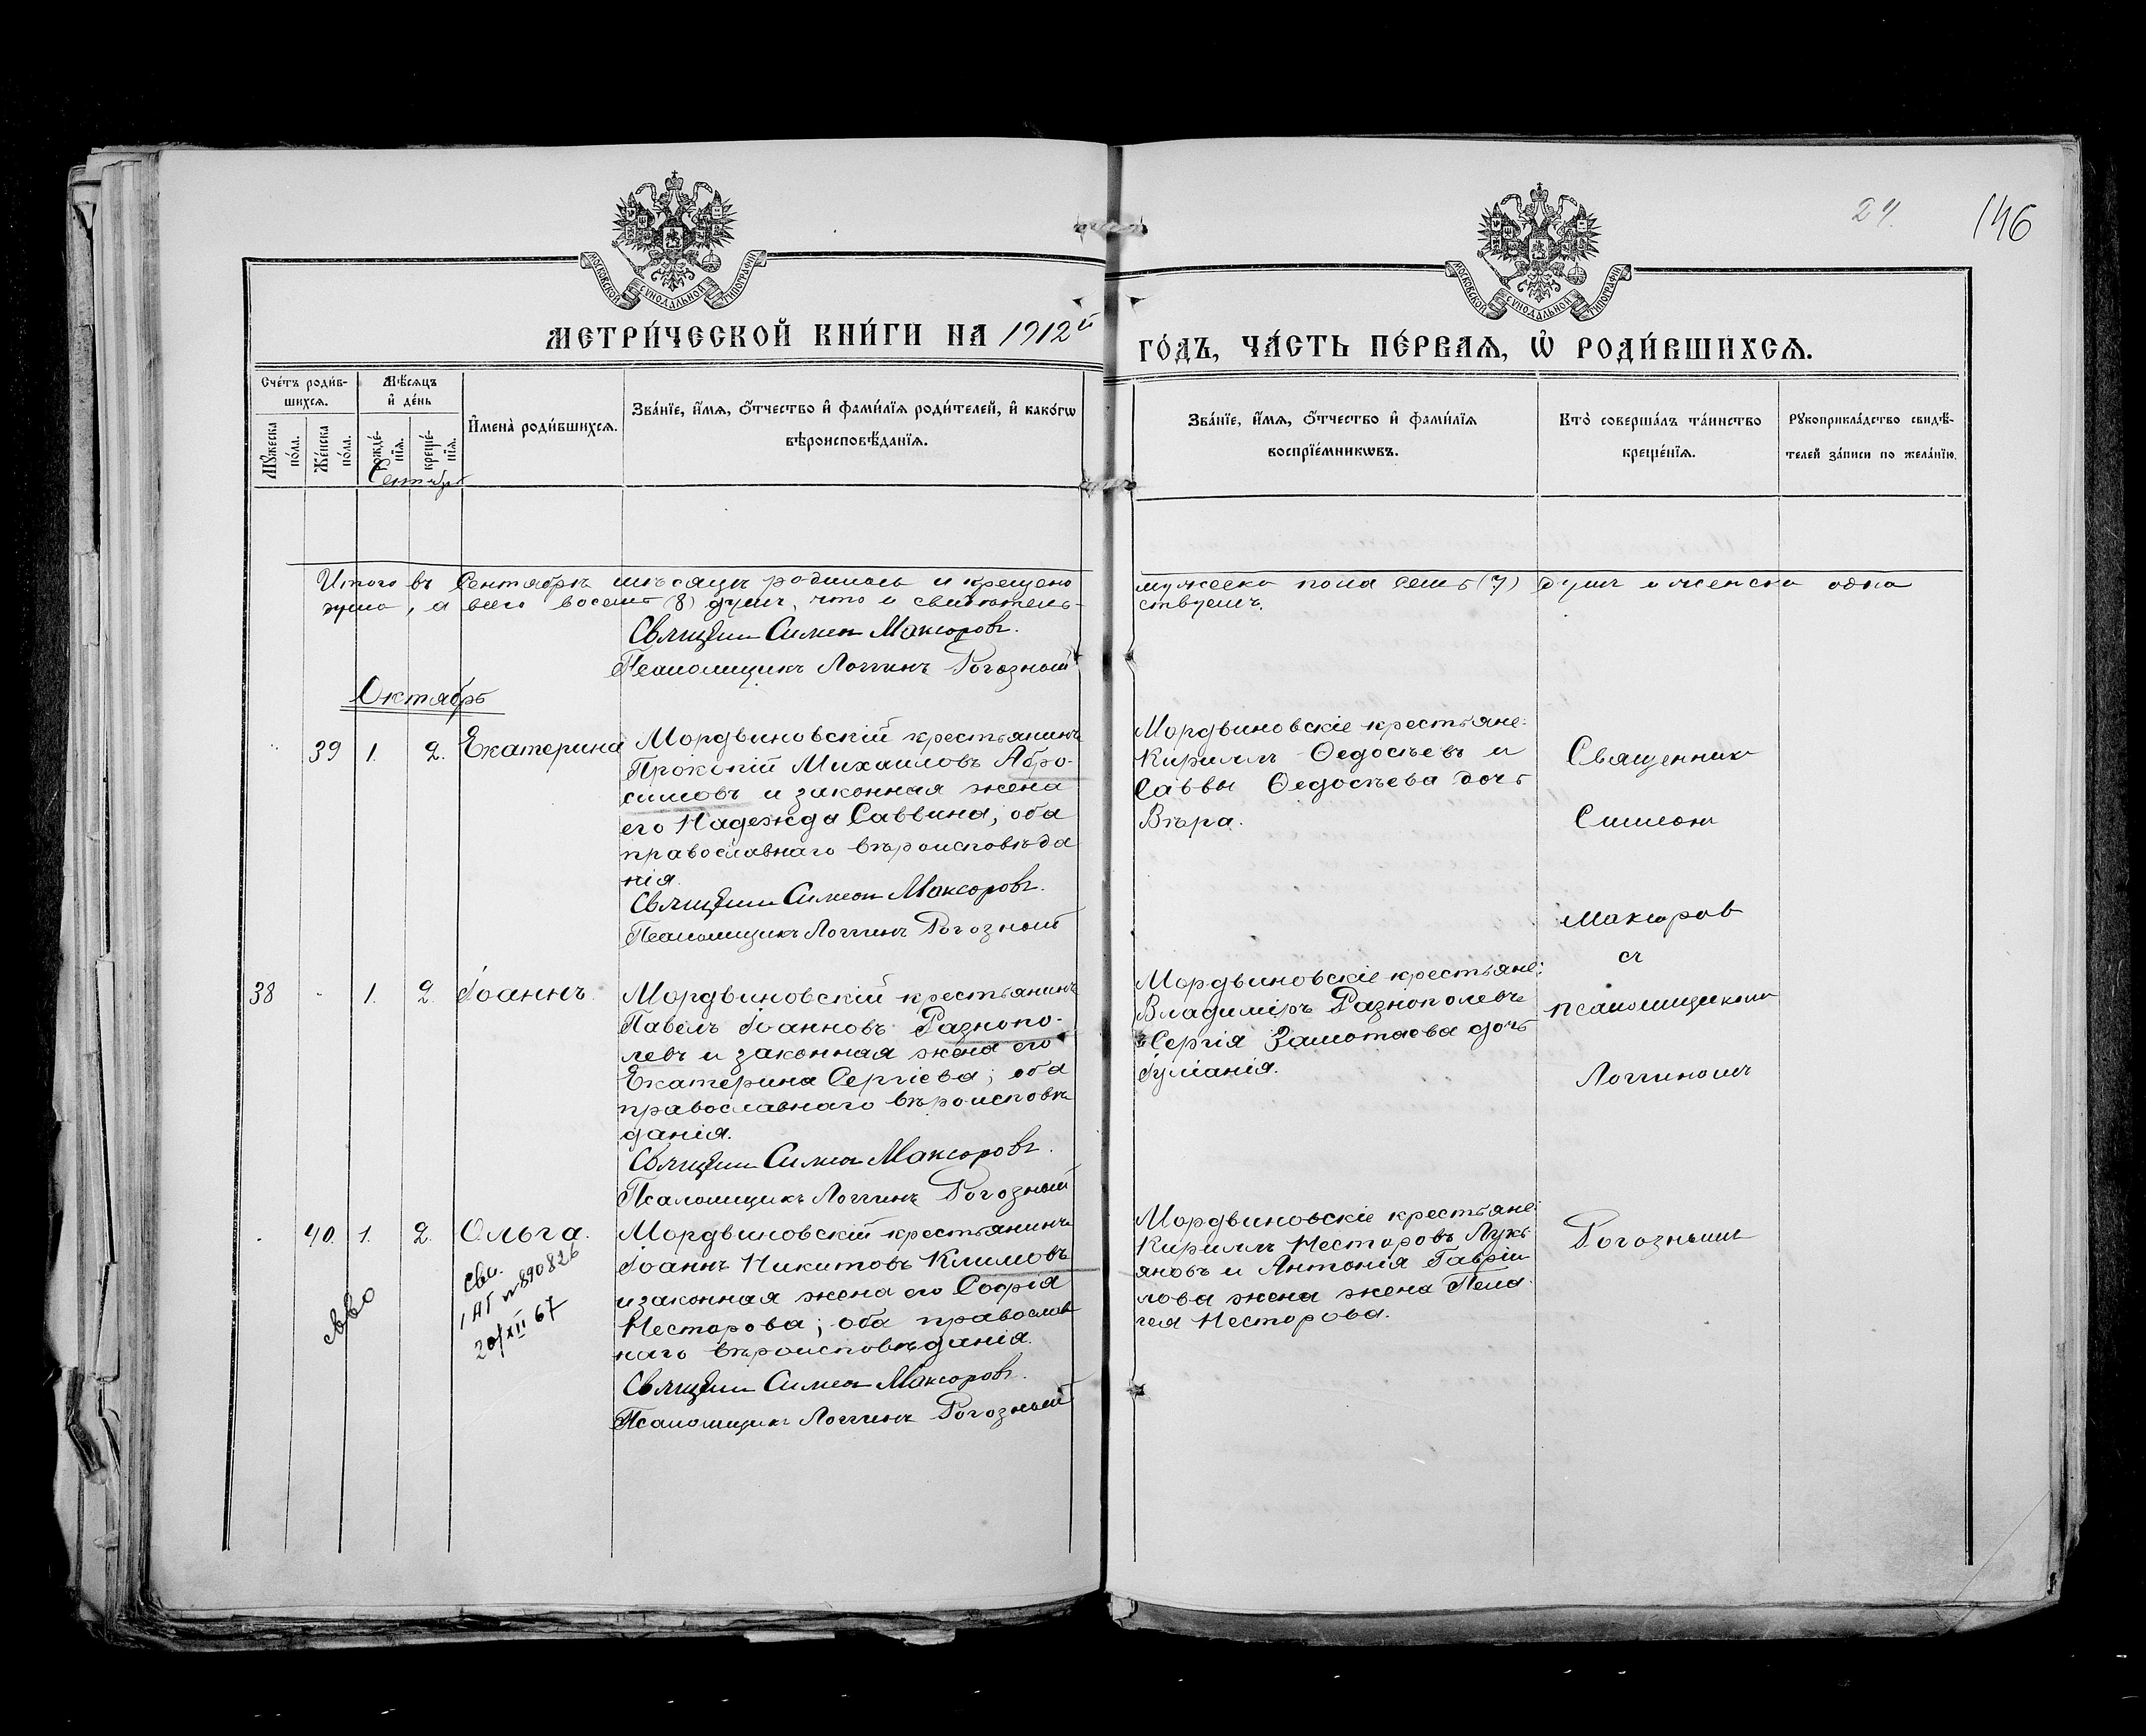 24.
146
МОСКОВСКОЙ СѴНОДАЛЬНОЙ ТИПОГРАФІИ
МОСКОВСКОЙ СѴНОДАЛЬНОЙ ТИПОГРАФІИ
МЕТРИ́ЧЕСКОЙ КНИ́ГИ НА 1912й
ГО́ДЪ, ЧА́СТЬ ПЕ́РВАѦ, Ѡ҆ РОДИ́ВШИХСѦ.
Сче́тъ роди́в-
шихсѧ.
Мꙋ́жеска
по́ла.
Же́нска
по́ла.
Мѣ́сѧцъ
и҆ де́нь
рожде́-
нїѧ.
креще́-
нїѧ.
И҆мена̀ роди́вшихсѧ.
Зва́нїе, и҆́мѧ, ѻ҆́тчество и҆ фами́лїѧ роди́телей, и҆ како́гѡ
вѣроисповѣ́данїѧ.
Зва́нїе, и҆́мѧ, ѻ҆́тчество и҆ фами́лїѧ
воспрїе́мникѡвъ.
Кто̀ соверша́лъ та́инство
креще́нїѧ.
Рꙋкоприкла́дство свидѣ́-
телей за́писи по жела́нїю.
Сентябрь
Итого въ Сентябрѣ мѣсяцѣ родилось и крещено мужеска пола семь (7) душъ и женска одна
душа, а всего восемь (8) душъ, что и свидѣтель-
ствуемъ.
Священни Симеон Максоровъ.
Псаломщикъ Логгинъ Рогозный
Октябрь
39 1. 2. Екатерина
Мордвиновскій крестьянинъ
Прокопій Михаиловъ Абро-
симовъ и законная жена
его Надежда Саввина; оба
православнаго вѣроисповѣда
нія.
Священни Симеон Максоровъ.
Псаломщикъ Логгинъ Рогозный
Мордвиновскіе крестьяне:
Кириллъ Ѳедосѣевъ и
Саввы Ѳедосѣева дочь
Вѣра.
Священник
Симеон
Максоров
съ
псаломщиком
Логгиномъ
Рогознымъ
38 - 1. 2. Іоаннъ.
Мордвиновскій крестьянинъ
Павелъ Іоанновъ Разнопо-
левъ и законная жена его
Екатерина Сергіева; оба
православнаго вѣроисповѣ
данія.
Священни Симеон Максоровъ.
Псаломщикъ Логгинъ Рогозный
Мордвиновскіе крестьяне:
Владиміръ Разнополевъ
Сергія Замотаева дочь
Іуліанія.
40. 1. 2. Ольга.
Сви.
1 АГ № 890826
20/XII 67
Мордвиновскій крестьянинъ
Іоаннъ Никитовъ Климовъ
и законная жена его Софія
Несторова; оба православ
наго вѣроисповѣданія.
Священни Симеон Максоровъ.
Псаломщикъ Логгинъ Рогозный
Мордвиновскіе крестьяне:
Кириллъ Несторовъ Лукь
яновъ и Антонія Гавріи
лова жена жена Пела
гея Несторова.